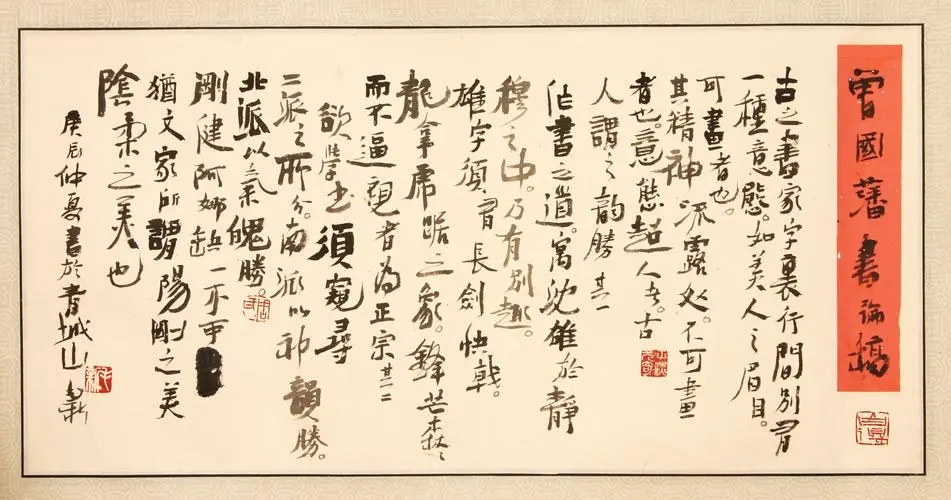 曾國藩書論稿
古之書家字裏行間別有
一種意態。如美人之眉目。
可畫者也。
其精神流露处。不可畫
者也。意態超人者。古
人謂之韵勝 其一
作書之道。寓沈雄於靜
穆之中。乃有別趣。
雄字須有長劍快戟。
龍拿虎踞之象。鋒芒森々
而不逼視者為正宗 其二
欲學书須窺尋
二派之所分。南派以神韻勝。
北派以氣魄勝。
剛健阿娜缺一不可
猶文家所謂陽剛之美
陰柔之美也
庚辰仲夏書於青城山